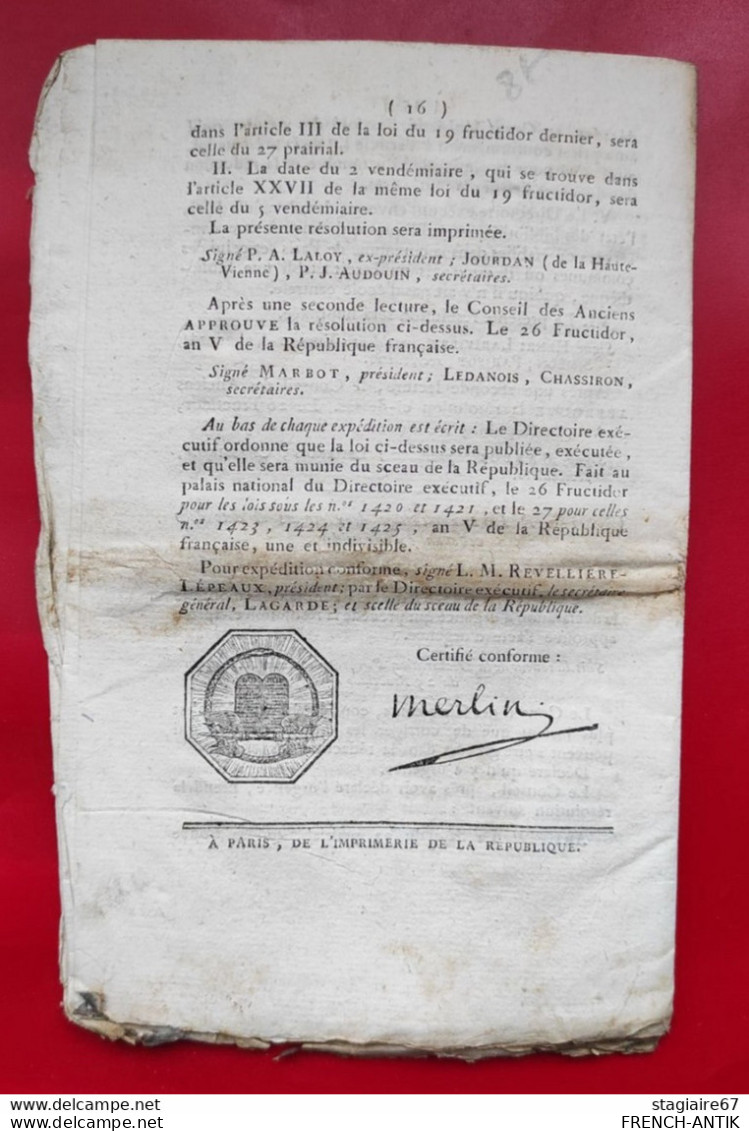 ( 16 )
dans l'article III de la loi du 19 fructidor dernier, sera
celle du 27 prairial.
II. La date du 2 vendémiaire, qui se trouve dans
l'article XXVII de la même loi du 19 fructidor, sera
celle du 5 vendémiaire.
La présente résolution sera imprimée.
Signé P. A. LALOY, ex-président; JOURDAN (de la Haute-
Vienne), P. J. AUDOUIN, secrétaires.
Après une seconde lecture, le Conseil des Anciens
APPROUVE la résolution ci-dessus. Le 26 Fructidor,
an V de la République française.
Signé MARBOT, président; LEDANOIS, CHASSIRON,
secrétaires.
Au bas de chaque expédition est écrit : Le Directoire exé-
cutif ordonne que la loi ci-dessus sera publiée, exécutée,
et qu'elle sera munie du sceau de la République. Fait au
palais national du Directoire exécutif, le 26 Fructidor
pour les lois sous les n.os 1420 et 1421, et le 27 pour celles
n.os 1423, 1424 et 1425, an V de la République
française, une et indivisible.
Pour expédition conforme, signé L. M. REVELLIERE-
LÉPEAUX, président; par le Directoire exécutif, le secrétaire
général, LAGARDE; et scellé du sceau de la République.
Certifié conforme :
Merlin
À PARIS, DE L'IMPRIMERIE DE LA RÉPUBLIQUE.
stagiaire67
FRENCH-ANTIK